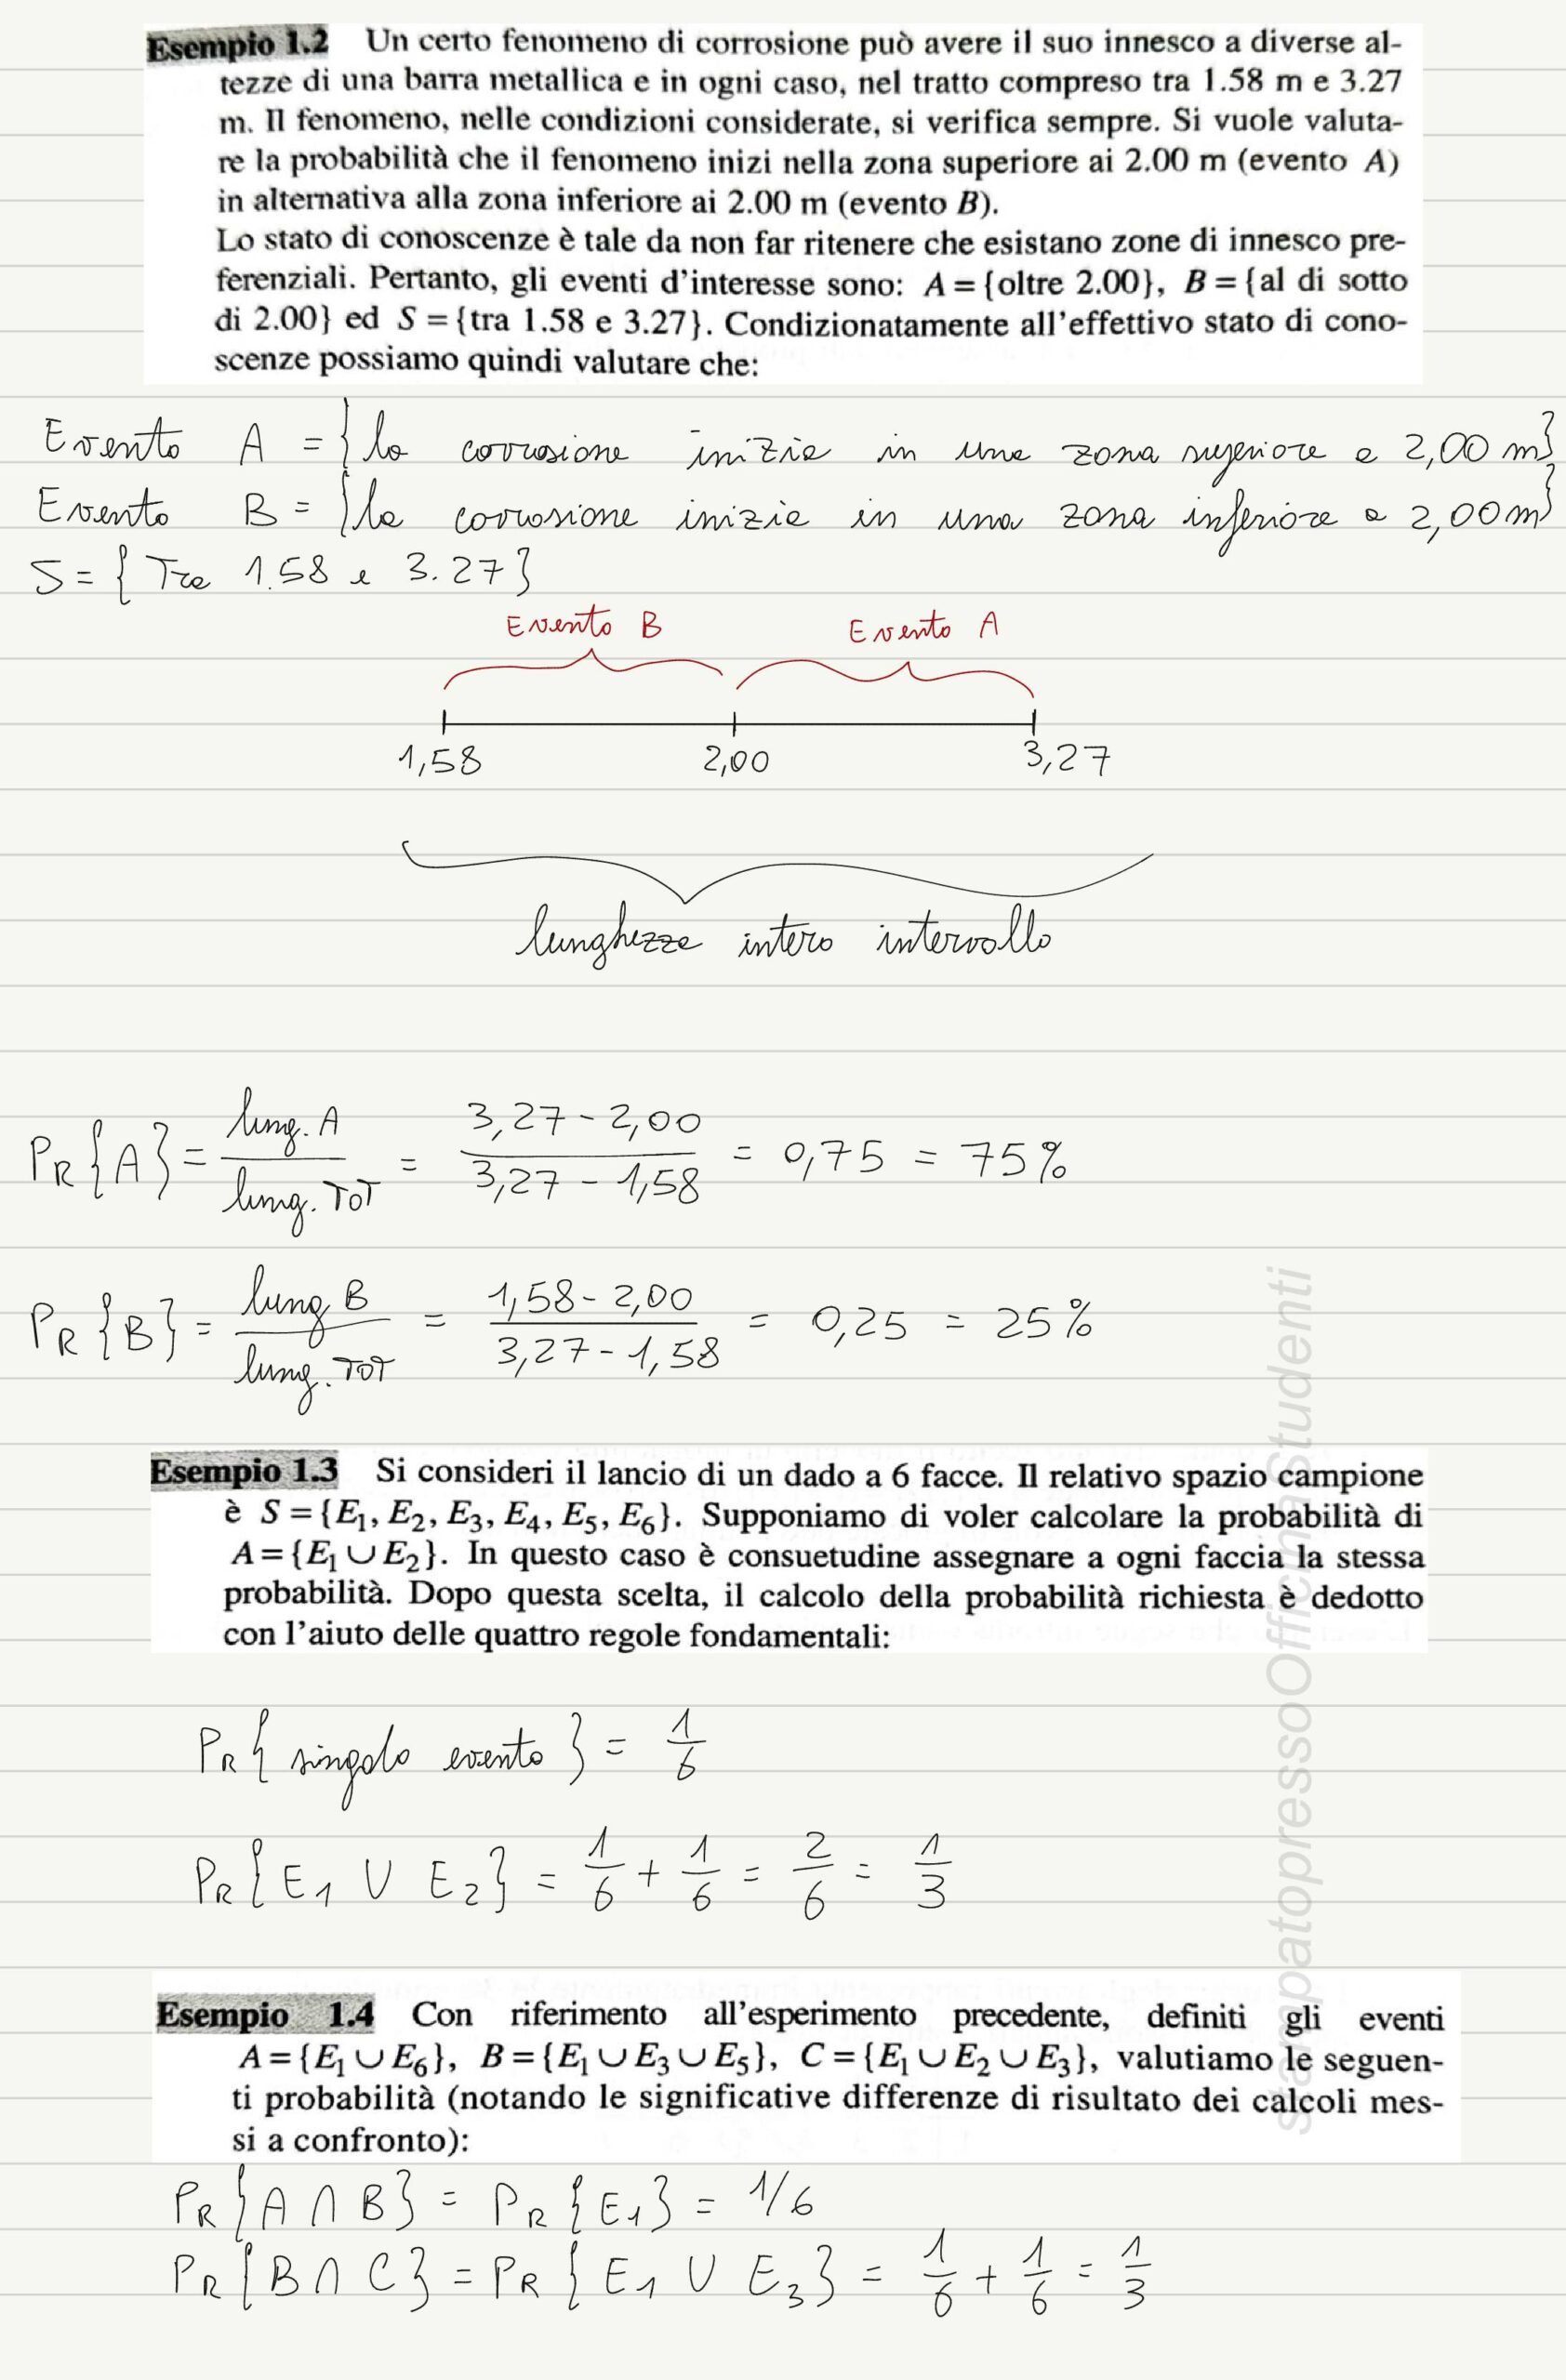 Esempio 1.2 Un certo fenomeno di corrosione può avere il suo innesco a diverse al-
tezze di una barra metallica e in ogni caso, nel tratto compreso tra 1.58 m e 3.27
m. Il fenomeno, nelle condizioni considerate, si verifica sempre. Si vuole valuta-
re la probabilità che il fenomeno inizi nella zona superiore ai 2.00 m (evento A)
in alternativa alla zona inferiore ai 2.00 m (evento B).
Lo stato di conoscenze è tale da non far ritenere che esistano zone di innesco pre-
ferenziali. Pertanto, gli eventi d'interesse sono: A = {oltre 2.00}, B = {al di sotto
di 2.00} ed S = {tra 1.58 e 3.27}. Condizionatamente all'effettivo stato di cono-
scenze possiamo quindi valutare che:
Evento A = {la corrosione inizia in una zona superiore a 2,00 m}
Evento B = {la corrosione inizia in una zona inferiore a 2,00 m}
S = { Tra 1.58 e 3.27 }
Evento B Evento A
1,58 2,00 3,27
lunghezza intero intervallo
PR{A} = lung. A / lung. TOT = 3,27 - 2,00 / 3,27 - 1,58 = 0,75 = 75%
PR{B} = lung B / lung. TOT = 1,58 - 2,00 / 3,27 - 1,58 = 0,25 = 25%
Esempio 1.3 Si consideri il lancio di un dado a 6 facce. Il relativo spazio campione
è S = {E₁, E₂, E₃, E₄, E₅, E₆}. Supponiamo di voler calcolare la probabilità di
A = {E₁ ∪ E₂}. In questo caso è consuetudine assegnare a ogni faccia la stessa
probabilità. Dopo questa scelta, il calcolo della probabilità richiesta è dedotto
con l'aiuto delle quattro regole fondamentali:
PR{ singolo evento } = 1/6
PR{E₁ ∪ E₂} = 1/6 + 1/6 = 2/6 = 1/3
Esempio 1.4 Con riferimento all'esperimento precedente, definiti gli eventi
A = {E₁ ∪ E₆}, B = {E₁ ∪ E₃ ∪ E₅}, C = {E₁ ∪ E₂ ∪ E₃}, valutiamo le seguen-
ti probabilità (notando le significative differenze di risultato dei calcoli mes-
si a confronto):
PR{A ∩ B} = PR{E₁} = 1/6
PR{B ∩ C} = PR{E₁ ∪ E₃} = 1/6 + 1/6 = 1/3
stampatopressoOfficinaStudenti